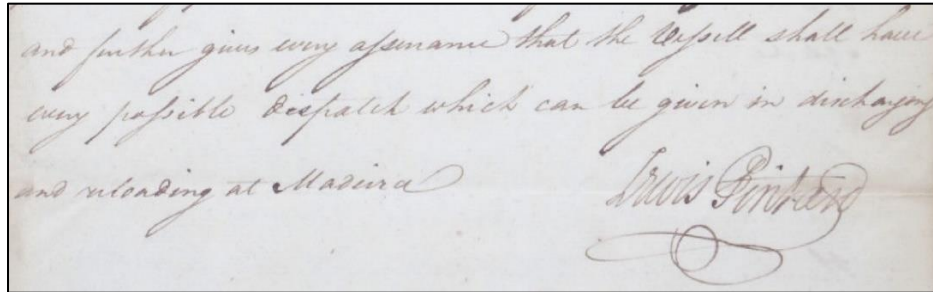 and further gives every assurance that the Vessell shall have
every possible dispatch which can be given in discharging
and reloading at Madeira
Lewis Pintard